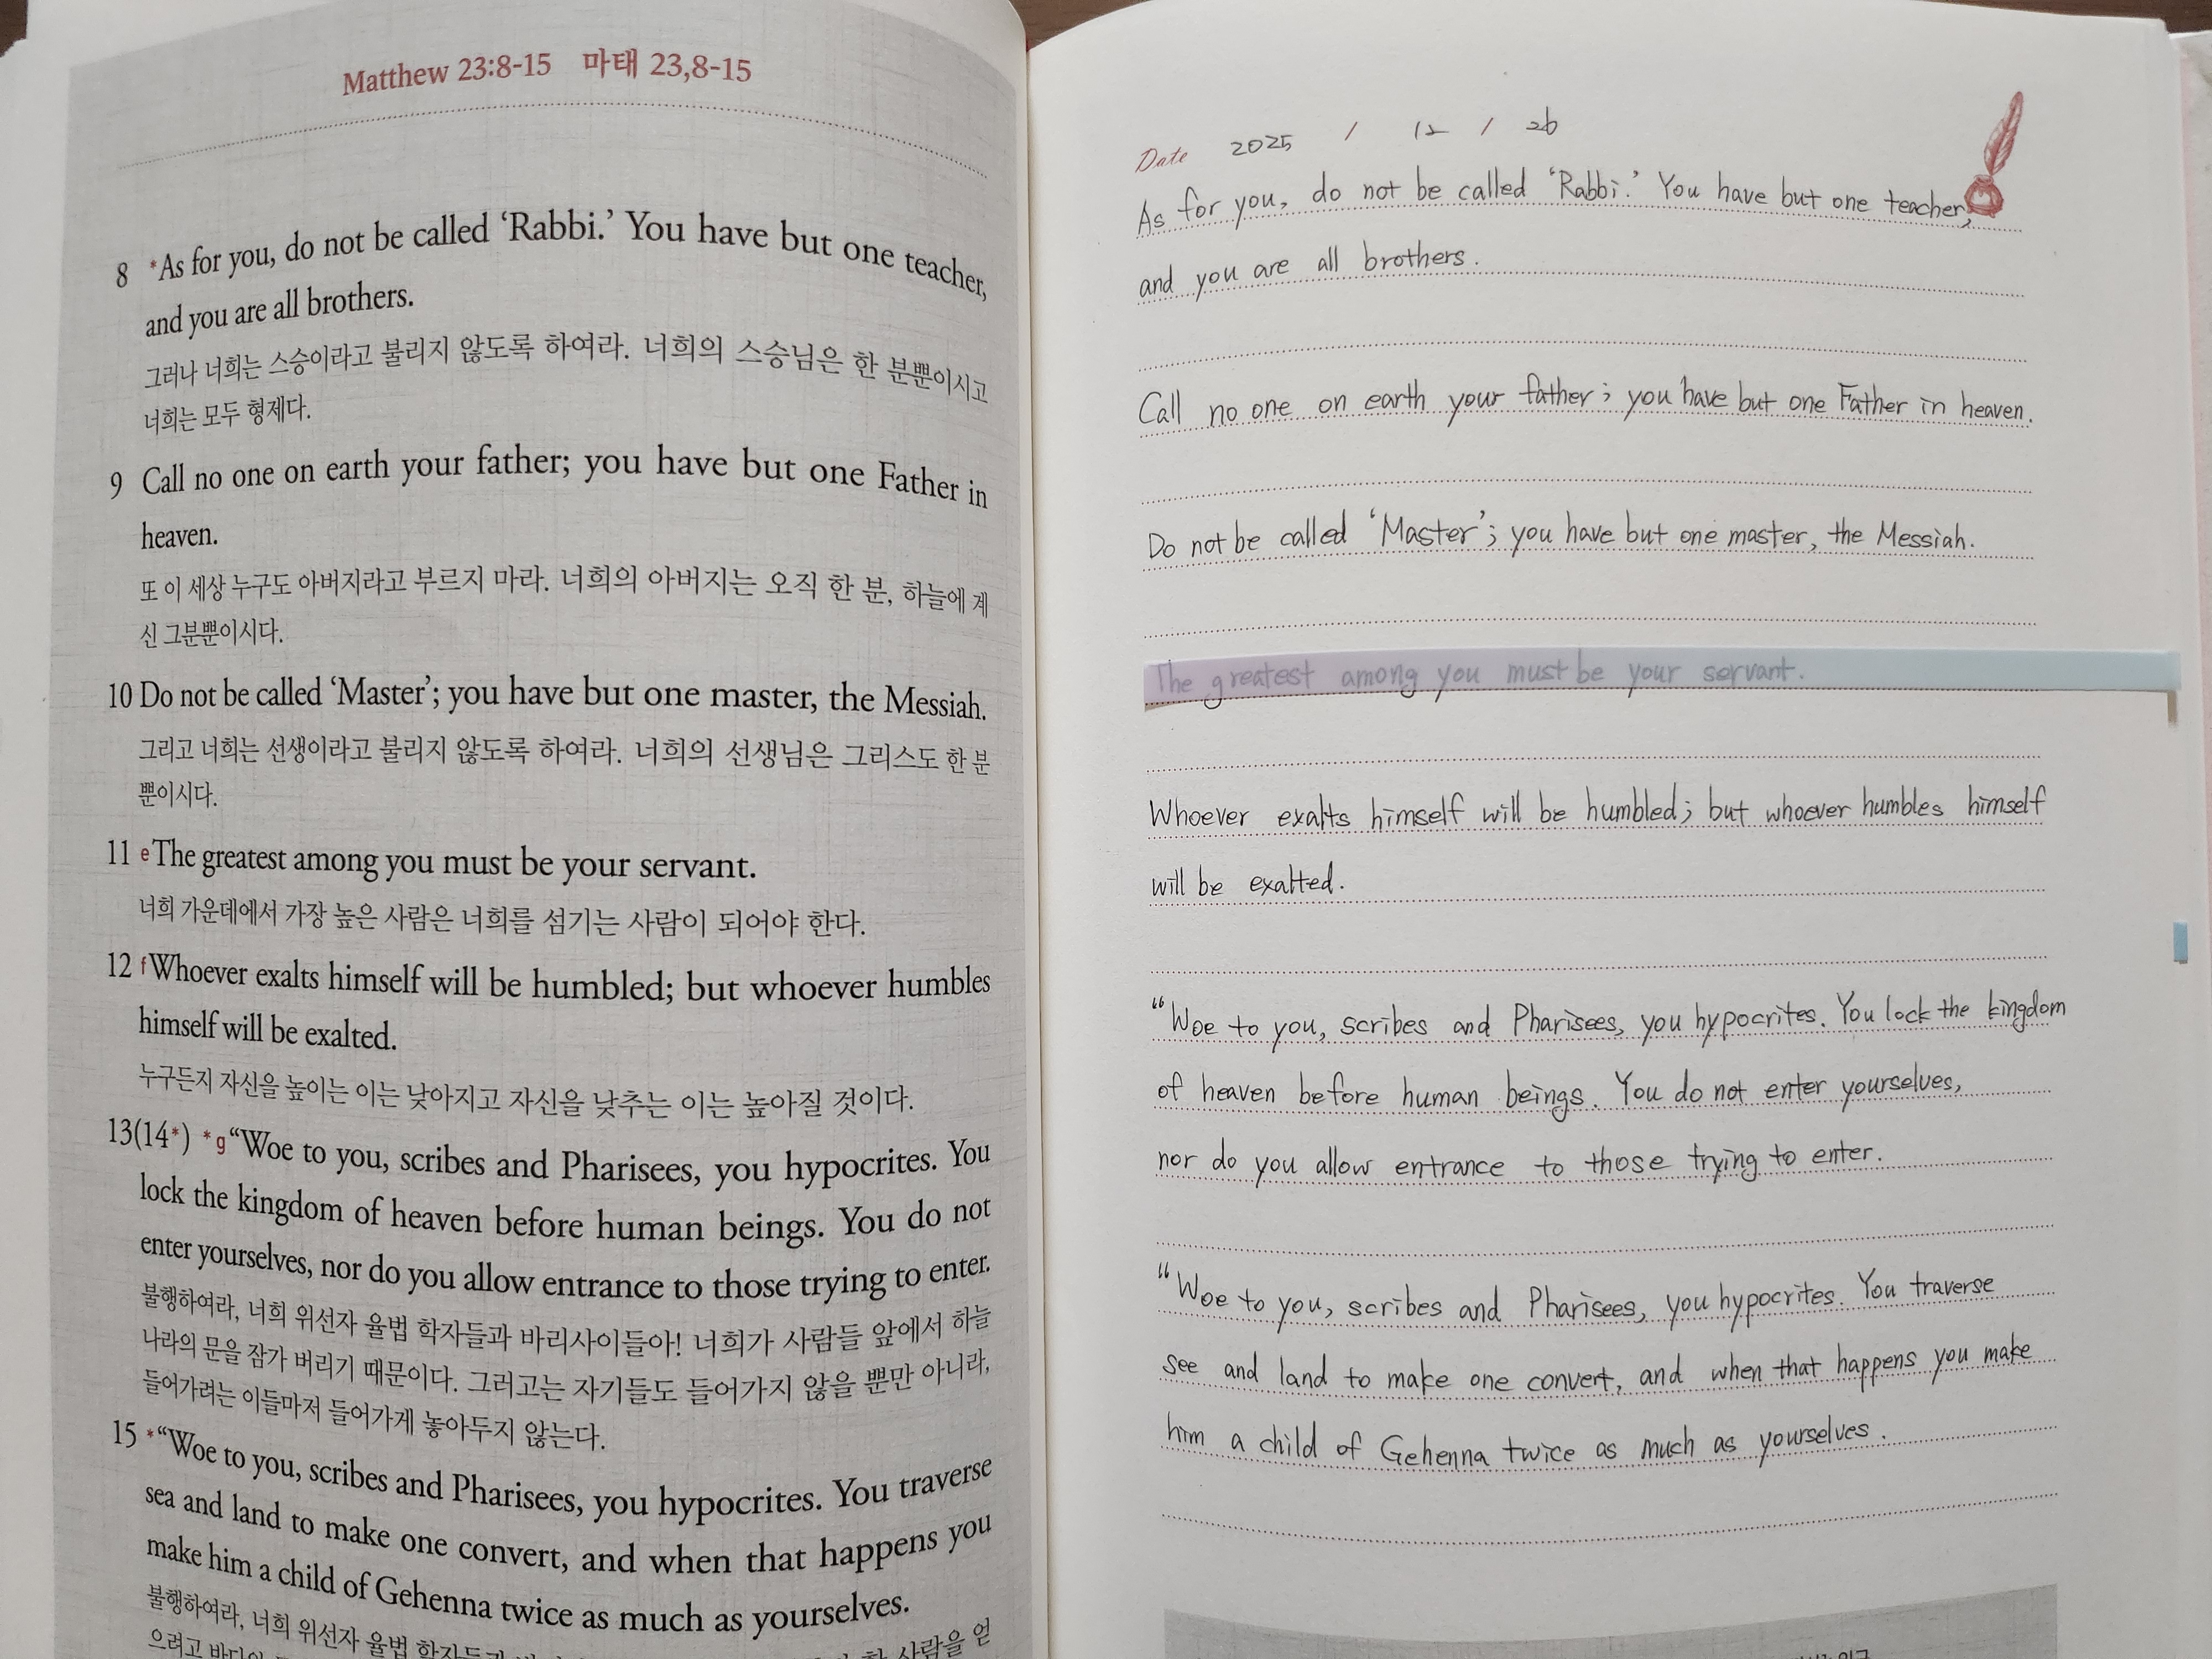 Matthew 23:8-15 마태 23,8-15
8 *As for you, do not be called ‘Rabbi.’ You have but one teacher,
and you are all brothers.
그러나 너희는 스승이라고 불리지 않도록 하여라. 너희의 스승님은 한 분뿐이시고
너희는 모두 형제다.
9 Call no one on earth your father; you have but one Father in
heaven.
또 이 세상 누구도 아버지라고 부르지 마라. 너희의 아버지는 오직 한 분, 하늘에 계
신 그분뿐이시다.
10 Do not be called ‘Master’; you have but one master, the Messiah.
그리고 너희는 선생이라고 불리지 않도록 하여라. 너희의 선생님은 그리스도 한 분
뿐이시다.
11 eThe greatest among you must be your servant.
너희 가운데에서 가장 높은 사람은 너희를 섬기는 사람이 되어야 한다.
12 fWhoever exalts himself will be humbled; but whoever humbles
himself will be exalted.
누구든지 자신을 높이는 이는 낮아지고 자신을 낮추는 이는 높아질 것이다.
13(14*) *g“Woe to you, scribes and Pharisees, you hypocrites. You
lock the kingdom of heaven before human beings. You do not
enter yourselves, nor do you allow entrance to those trying to enter.
불행하여라, 너희 위선자 율법 학자들과 바리사이들아! 너희가 사람들 앞에서 하늘
나라의 문을 잠가 버리기 때문이다. 그러고는 자기들도 들어가지 않을 뿐만 아니라,
들어가려는 이들마저 들어가게 놓아두지 않는다.
15 *“Woe to you, scribes and Pharisees, you hypocrites. You traverse
sea and land to make one convert, and when that happens you
make him a child of Gehenna twice as much as yourselves.
불행하여라, 너희 위선자 율법 학자들과
으려고 바다와 한 사람을 얻
Date 2025 / 12 / 26
As for you, do not be called ‘Rabbi.’ You have but one teacher,
and you are all brothers.
Call no one on earth your father; you have but one Father in heaven.
Do not be called ‘Master’; you have but one master, the Messiah.
The greatest among you must be your servant.
Whoever exalts himself will be humbled; but whoever humbles himself
will be exalted.
“Woe to you, scribes and Pharisees, you hypocrites. You lock the kingdom
of heaven before human beings. You do not enter yourselves,
nor do you allow entrance to those trying to enter.
“Woe to you, scribes and Pharisees, you hypocrites. You traverse
see and land to make one convert, and when that happens you make
him a child of Gehenna twice as much as yourselves.